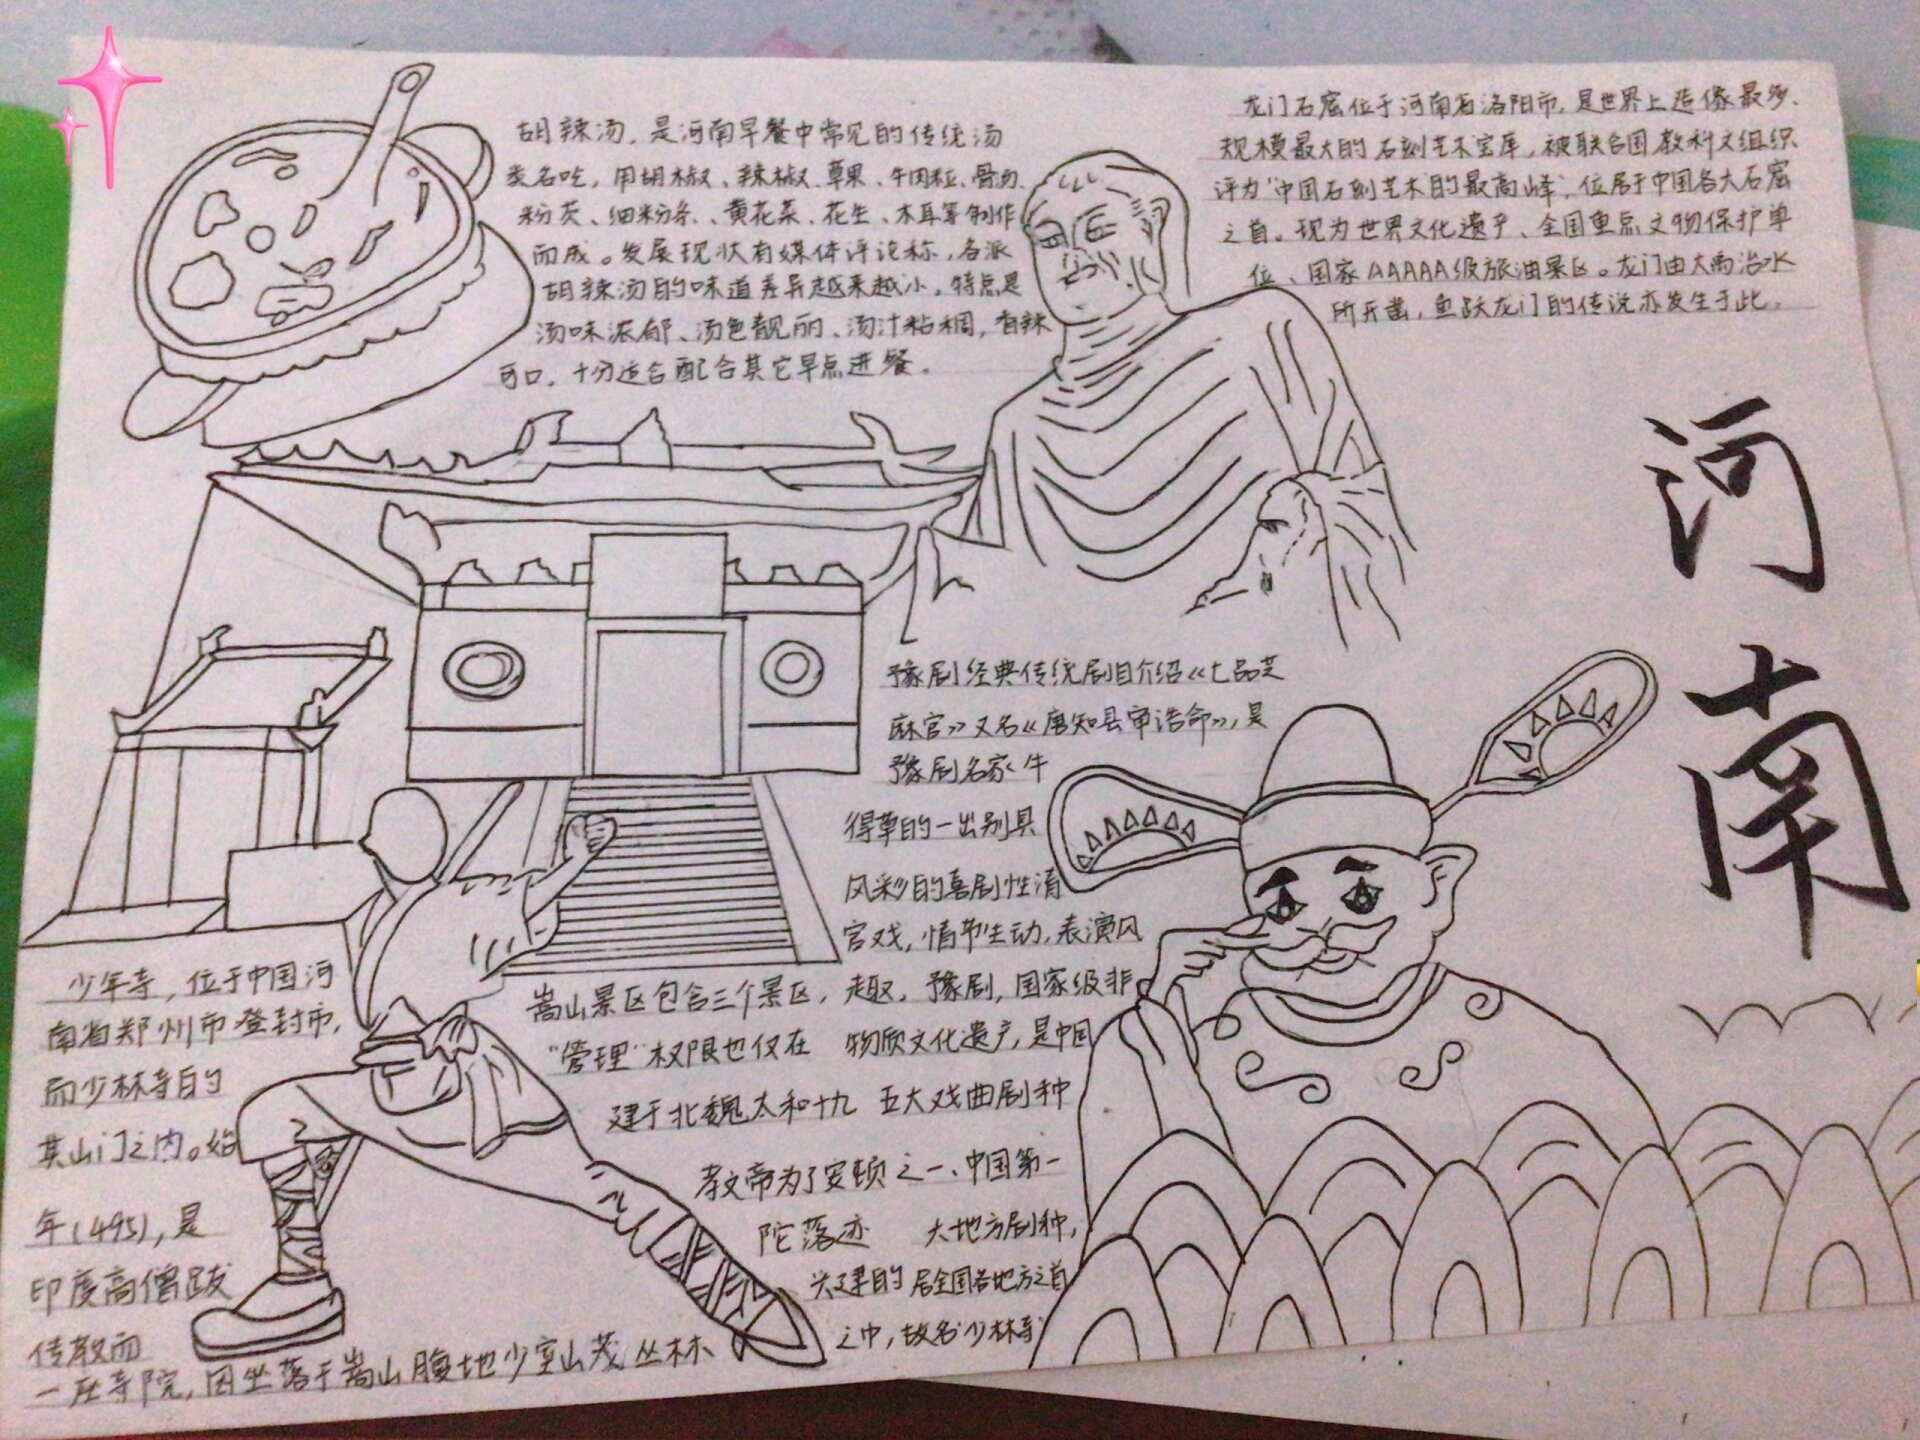 胡辣汤，是河南早餐中常见的传统汤
类名吃，用胡椒、辣椒、草果、牛肉粒、骨汤、
粉芡、细粉条、黄花菜、花生、木耳等制作
而成。发展现状有媒体评论称，各派
胡辣汤的味道差异越来越小。特点是
汤味浓郁、汤色靓丽、汤汁粘稠，香辣
可口，十分适合配合其它早点进餐。
龙门石窟位于河南省洛阳市，是世界上造像最多、
规模最大的石刻艺术宝库，被联合国教科文组织
评为"中国石刻艺术的最高峰"，位居于中国各大石窟
之首。现为世界文化遗产、全国重点文物保护单
位、国家AAAAA级旅油景区。龙门由大禹治水
所开凿，鱼跃龙门的传说亦发生于此。
河南
豫剧经典传统剧目介绍《七品芝
麻官》又名《唐知县审诰命》，是
豫剧名家牛
得草的一出别具
风彩的喜剧性清
官戏，情节生动，表演风
趣。豫剧，国家级非
物质文化遗产，是中国
五大戏曲剧种
之一、中国第一
大地方剧种，
居全国各地方之首
少年寺，位于中国河
南省郑州市登封市，
嵩山景区包含三个景区，
而少林寺的
"管理"权限也仅在
其山门之内。始
建于北魏太和十九
年(495)，是
孝文帝为了安顿
印度高僧跋
陀落迹
传教而
兴建的
一座寺院，因坐落于嵩山腹地少室山茂丛林
之中，故名"少林寺"